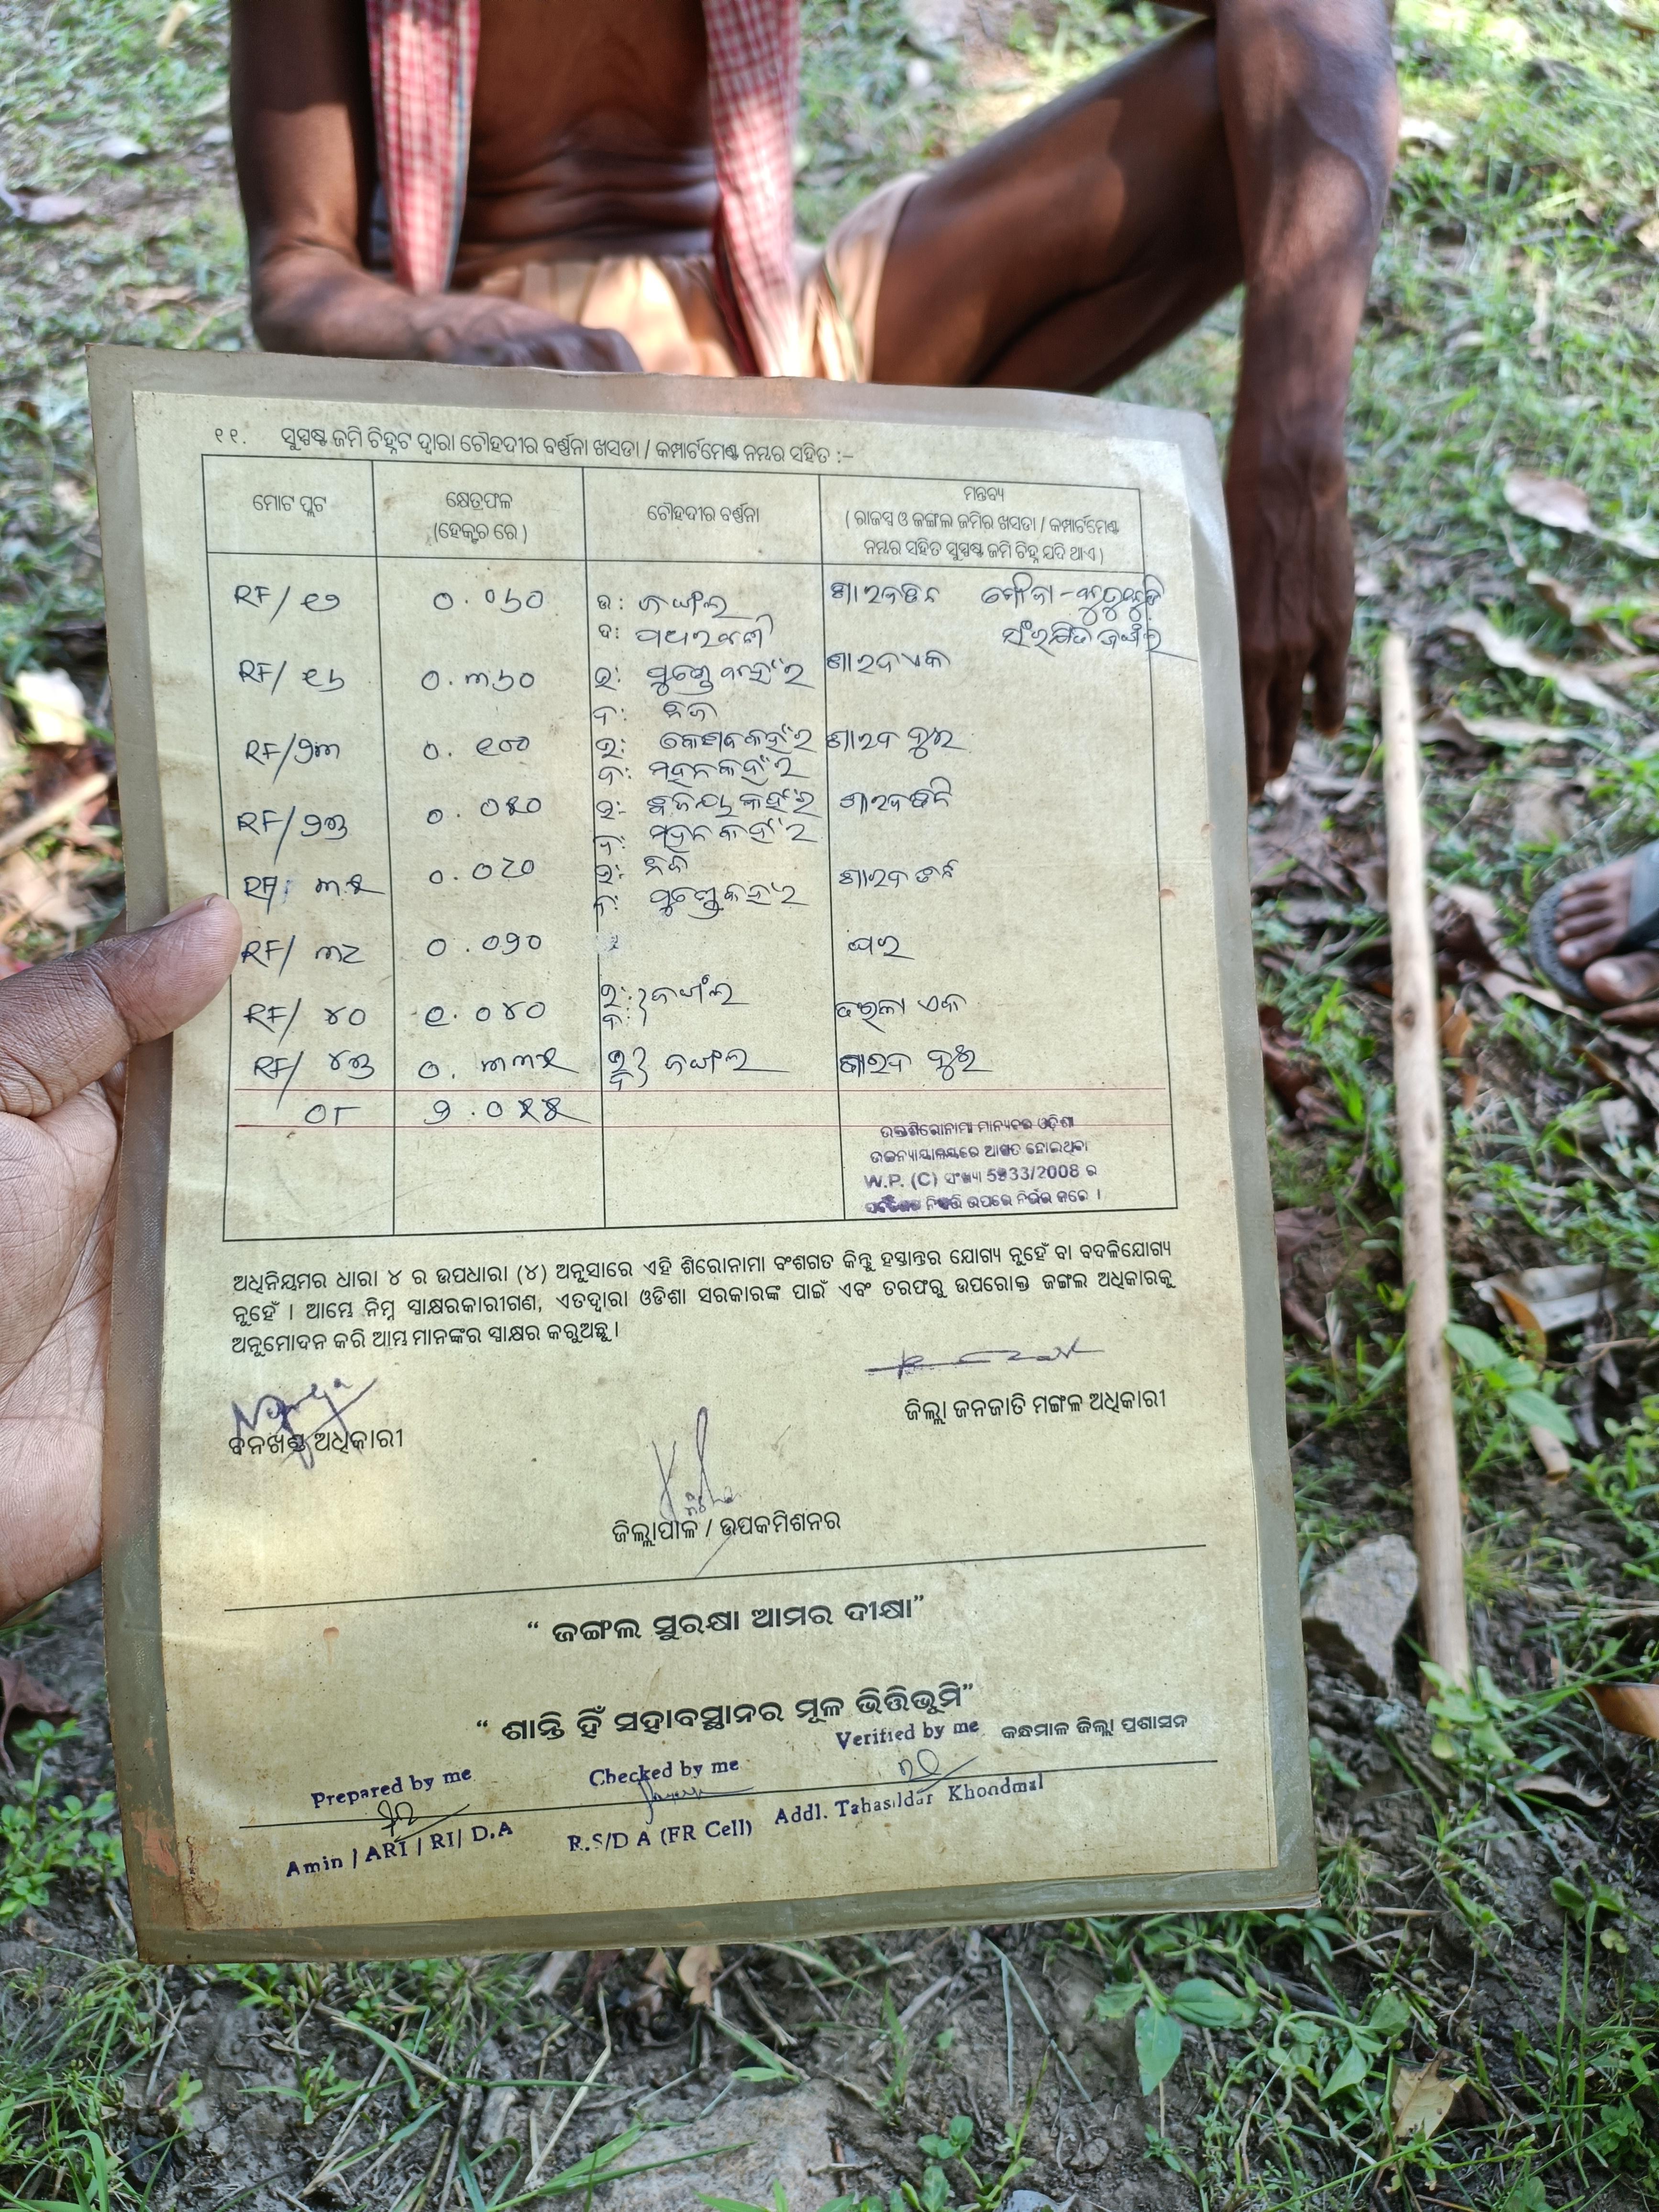 ୧୧. ସୁସ୍ପଷ୍ଟ ଜମି ଚିହ୍ନଟ ଦ୍ୱାରା ଚୌହଦୀର ବର୍ଣ୍ଣନା ଖସଡା / କମ୍ପାର୍ଟମେଣ୍ଟ ନମ୍ଭର ସହିତ :-
ମୋଟ ପ୍ଲଟ
କ୍ଷେତ୍ରଫଳ
(ହେକ୍ଟର ରେ)
ଚୌହଦୀର ବର୍ଣ୍ଣନା
ମନ୍ତବ୍ୟ
( ରାଜସ୍ୱ ଓ ଜଙ୍ଗଲ ଜମିର ଖସଡା / କମ୍ପାର୍ଟମେଣ୍ଟ
ନମ୍ଭର ସହିତ ସୁସ୍ପଷ୍ଟ ଜମି ଚିହ୍ନ ଯଦି ଥାଏ )
RF/ ୧୭ ୦.୦୬୦ ଉ: ଜଙ୍ଗଲ ଶାରଦତିନ ମୌଜା -
ଦ: ସଂରକ୍ଷିତ ଜଙ୍ଗଲ
RF/ ୧୬ ୦.୩୬୦ ଉ: କହଁର ଶାରଦଏକ
ଦ: ନିଜ
RF/୨୩ ୦.୧୦୦ ଉ: କେଶବ କହଁର ଶାରଦ ଦୁଇ
ଦ: ମହନ କହଁର
RF/୨୩ ୦.୦୫୦ ଉ: କହଁର ଶାରଦତିନି
ଦ: ମହନ କହଁର
RF/ ୩୫ ୦.୦୨୦ ଉ: ନିଜ ଶାରଦ ତିନି
ଦ: କହଁର
RF/ ୩୮ ୦.୦୨୦ ଘର
RF/ ୪୦ ୧.୦୪୦ ଉ: ଦ: } ଜଙ୍ଗଲ ଡଙ୍ଗଲା ଏକ
RF/ ୪୩ ୦.୩୩୫ ଉ ଦ } ଜଙ୍ଗଲ ଶାରଦ ଦୁଇ
୦୮ ୨.୦୫୫
ଉକ୍ତ ଶିରୋନାମା ମାନ୍ୟବର ଓଡ଼ିଶା
ଉଚ୍ଚନ୍ୟାୟାଳୟରେ ଆଗତ ହୋଇଥିବା
W.P. (C) ସଂଖ୍ୟା 5933/2008 ର
ଉପରେ ନିର୍ଭର କରେ ।
ଅଧିନିୟମର ଧାରା ୪ ର ଉପଧାରା (୪) ଅନୁସାରେ ଏହି ଶିରୋନାମା ବଂଶଗତ କିନ୍ତୁ ହସ୍ତାନ୍ତର ଯୋଗ୍ୟ ନୁହେଁ ବା ବଦଳିଯୋଗ୍ୟ
ନୁହେଁ । ଆମ୍ଭେ ନିମ୍ନ ସ୍ୱାକ୍ଷରକାରୀଗଣ, ଏତଦ୍ୱାରା ଓଡିଶା ସରକାରଙ୍କ ପାଇଁ ଏବଂ ତରଫରୁ ଉପରୋକ୍ତ ଜଙ୍ଗଲ ଅଧିକାରକୁ
ଅନୁମୋଦନ କରି ଆମ୍ଭ ମାନଙ୍କର ସ୍ୱାକ୍ଷର କରୁଅଛୁ ।
ବନଖଣ୍ଡ ଅଧିକାରୀ
ଜିଲ୍ଲାପାଳ / ଉପକମିଶନର
ଜିଲ୍ଲା ଜନଜାତି ମଙ୍ଗଳ ଅଧିକାରୀ
“ ଜଙ୍ଗଲ ସୁରକ୍ଷା ଆମର ଦୀକ୍ଷା”
“ ଶାନ୍ତି ହିଁ ସହାବସ୍ଥାନର ମୂଳ ଭିତ୍ତିଭୂମି”
କନ୍ଧମାଳ ଜିଲ୍ଲା ପ୍ରଶାସନ
Prepared by me
Checked by me
Verified by me
Amin / ARI / RI/ D.A
R.S/D A (FR Cell)
Addl. Tahasildar Khondmal